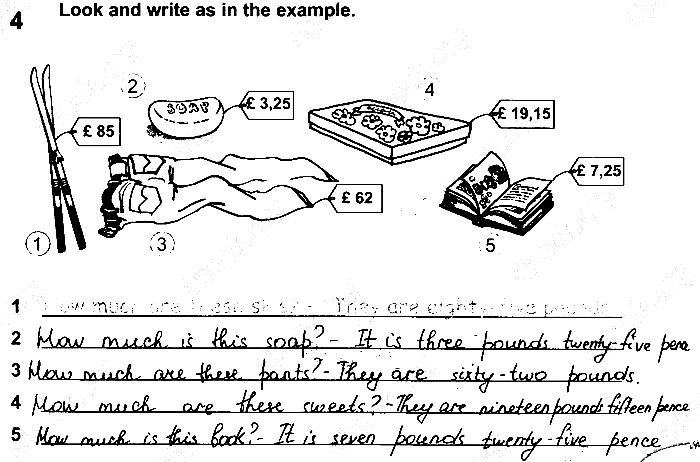 4 Look and write as in the example.
2 4
SOAP £ 3,25 £ 19,15
£ 85 £ 7,25
£ 62
1 3 5
1 How much are these skis? - They are eighty-five pounds
2 How much is this soap? - It is three pounds twenty-five pence
3 How much are these pants? - They are sixty-two pounds.
4 How much are these sweets? - They are nineteen pounds fifteen pence
5 How much is this book? - It is seven pounds twenty-five pence